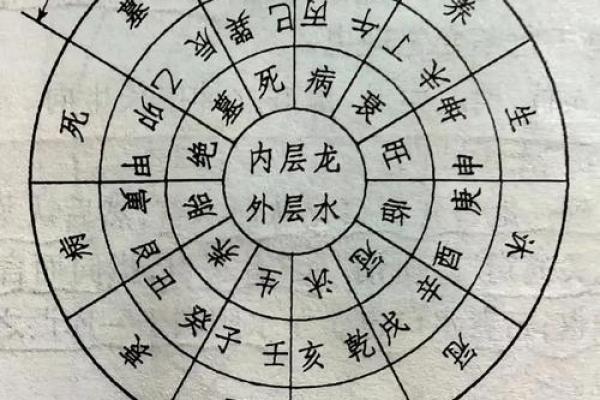 内层龙
外层水
病 衰 旺 临 冠 沐 生 养 胎 绝 墓 死
丙 午 丁 未 坤 申 庚 酉 辛 戌 乾 亥 壬 子 癸 丑 艮 寅 甲 卯 乙 辰 巽 巳
养 生 沐 冠 衰 病 死 墓